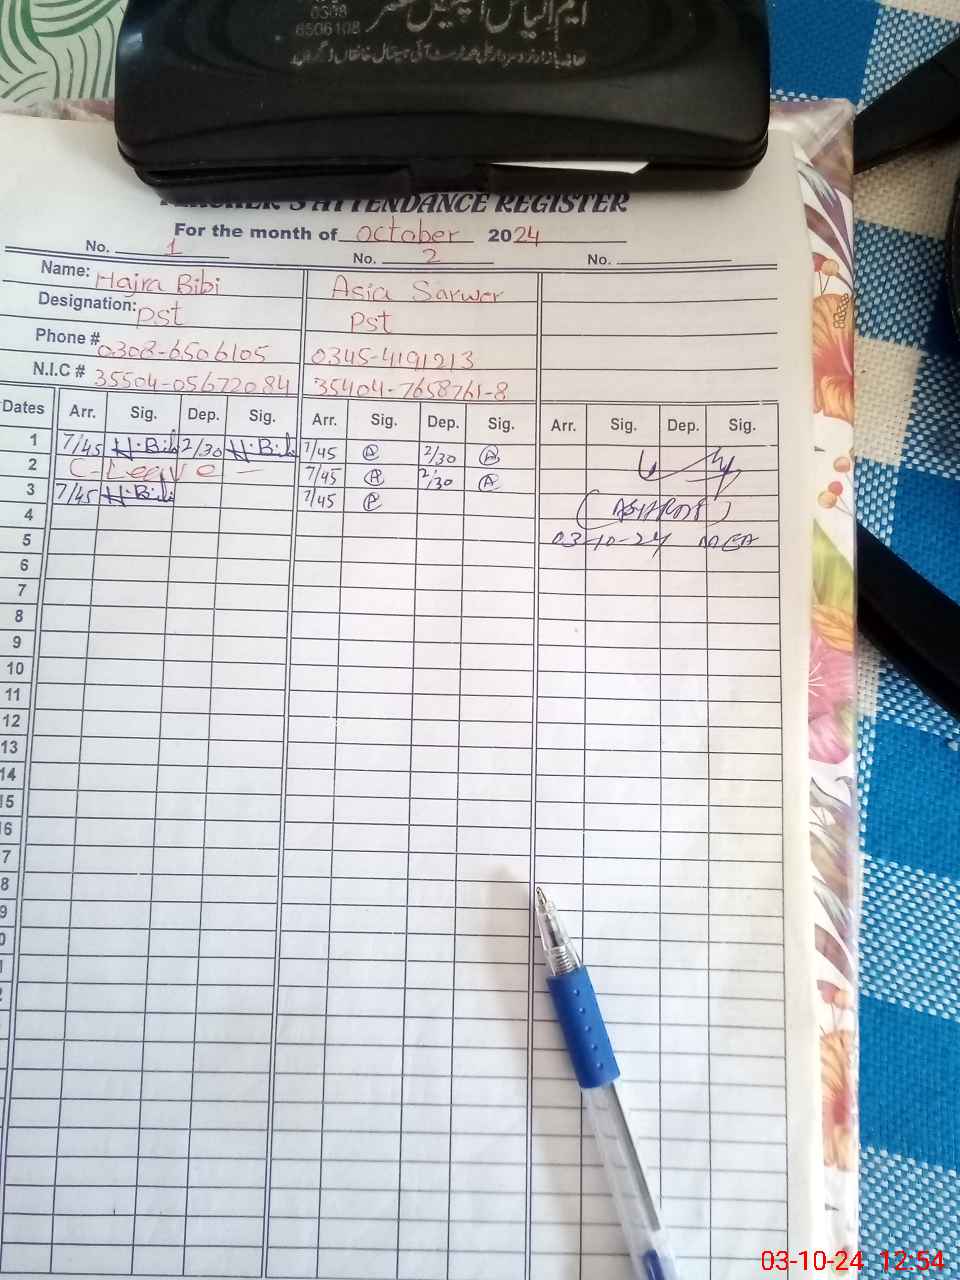 0308
6506108
TEACHER'S ATTENDANCE REGISTER
For the month of October 2024
No. 1 No. 2 No.
Name: Hajra Bibi Asia Sarwar
Designation: Pst Pst
Phone # 0308-6506105 0345-4191213
N.I.C # 35504-05672084 35404-7658761-8
Dates Arr. Sig. Dep. Sig. Arr. Sig. Dep. Sig. Arr. Sig. Dep. Sig.
1 7/45 H.Bibi 2/30 H.Bibi 7/45 A 2/30 A
2 C-Leave 7/45 A 2/30 A
3 7/45 H.Bibi 7/45 A
4
5 03-10-24 MEA
6
7
8
9
10
11
12
13
14
15
16
7
8
9
0
1
2
03-10-24 12:54